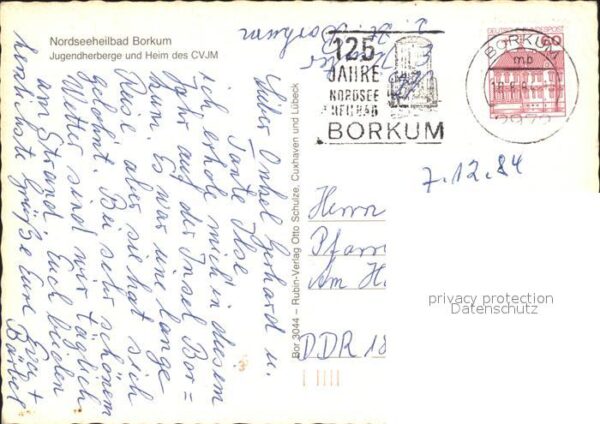 Nordseeheilbad Borkum
Jugendherberge und Heim des CVJM
Lieber Onkel Gerhard u.
Tante Ilse
ich erhole mich in diesem
Jahr auf der Insel Bor=
kum. Es war eine lange
Reise aber sie hat sich
gelohnt. Bei sehr schönem
Wetter sind wir täglich
am Strand. Euch beiden
herzlichste Grüße Eure Evi +
Bärbel
Bor 3044 – Rubin-Verlag Otto Schulze, Cuxhaven und Lübeck
125
JAHRE
NORDSEE
HEILBAD
BORKUM
DEUTSCHE BUNDESPOST
60
BORKUM
mb
2972
7.12.84
Herrn
Pfarr
Am H
DDR 18
privacy protection
Datenschutz